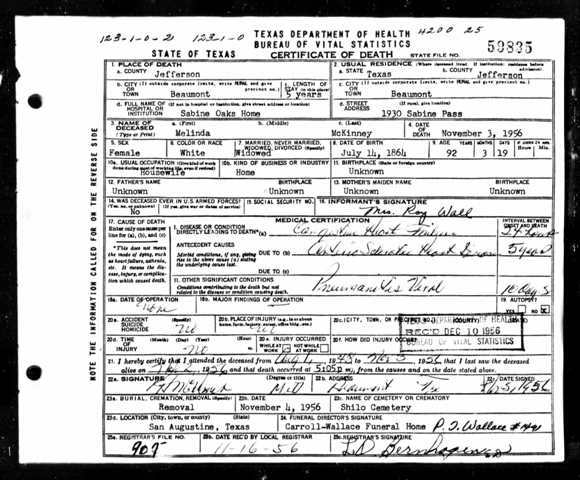 123-1-0-2 123-1-0 TEXAS DEPARTMENT OF HEALTH 4200 25
BUREAU OF VITAL STATISTICS
STATE OF TEXAS CERTIFICATE OF DEATH STATE FILE NO. 59835
1. PLACE OF DEATH 2. USUAL RESIDENCE (Where deceased lived. If institution: residence before admission)
a. COUNTY Jefferson a. STATE Texas b. COUNTY Jefferson
b. CITY (If outside corporate limits, write RURAL and give precinct no.) OR TOWN Beaumont c. LENGTH OF STAY (in this place) 5 years c. CITY (If outside corporate limits, write RURAL and give precinct no.) OR TOWN Beaumont
d. FULL NAME OF HOSPITAL OR INSTITUTION (If not in hospital or institution, give street address or location) Sabine Oaks Home d. STREET ADDRESS (If rural, give location) 1930 Sabine Pass
3. NAME OF DECEASED (Type or Print) a. (First) Melinda b. (Middle) c. (Last) McKinney 4. DATE OF DEATH November 3, 1956
5. SEX Female 6. COLOR OR RACE White 7. MARRIED, NEVER MARRIED, WIDOWED, DIVORCED (Specify) Widowed 8. DATE OF BIRTH July 14, 1864 9. AGE YEARS 92 MONTHS 3 DAYS 19
10a. USUAL OCCUPATION (Give kind of work done during most of working life, even if retired) Housewife 10b. KIND OF BUSINESS OR INDUSTRY Home 11. BIRTHPLACE (State or foreign country) Unknown
12. FATHER'S NAME BIRTHPLACE 13. MOTHER'S MAIDEN NAME BIRTHPLACE
Unknown Unknown Unknown Unknown
14. WAS DECEASED EVER IN U.S. ARMED FORCES? (Yes, no, or unknown) (If yes, give war or dates of service) No 15. SOCIAL SECURITY NO. 16. INFORMANT'S SIGNATURE Mrs. Roy Wall
17. CAUSE OF DEATH MEDICAL CERTIFICATION INTERVAL BETWEEN ONSET AND DEATH
Enter only one cause per line for (a), (b), and (c) I. DISEASE OR CONDITION DIRECTLY LEADING TO DEATH* (a) Congestive Heart Failure
*This does not mean the mode of dying, such as heart failure, asthenia, etc. It means the disease, injury, or complication which caused death.
ANTECEDENT CAUSES DUE TO (b) 5 years
Morbid conditions, if any, giving rise to the above cause (a) stating the underlying cause last. DUE TO (c)
II. OTHER SIGNIFICANT CONDITIONS
Conditions contributing to the death but not related to the disease or condition causing death. 10 days
18a. DATE OF OPERATION 18b. MAJOR FINDINGS OF OPERATION 19. AUTOPSY YES NO X
20a. ACCIDENT SUICIDE HOMICIDE no 20b. PLACE OF INJURY no 20c. (CITY, TOWN, OR
20d. TIME OF INJURY (Month) (Day) (Year) (Hour) no 20e. INJURY OCCURRED WHILE AT WORK NOT WHILE AT WORK 20f. HOW DID INJURY OCCUR?
DEPARTMENT OF HEALTH
REC'D DEC 10 1956
BUREAU OF VITAL STATISTICS
21. I hereby certify that I attended the deceased from 1953 to Nov 3, 1956 that I last saw the deceased
alive on 1956 and that death occurred at 5:05p m., from the causes and on the date stated above.
22a. SIGNATURE (Degree or title) M.D. 22b. ADDRESS Beaumont Tx 22c. DATE SIGNED
23a. BURIAL, CREMATION, REMOVAL (Specify) Removal 23b. DATE November 4, 1956 23c. NAME OF CEMETERY OR CREMATORY Shilo Cemetery
23d. LOCATION (City, town, or county) (State) San Augustine, Texas 24. FUNERAL DIRECTOR'S SIGNATURE Carroll-Wallace Funeral Home P. T. Wallace
25a. REGISTRAR'S FILE NO. 907 25b. DATE REC'D BY LOCAL REGISTRAR 11-16-56 25c. REGISTRAR'S SIGNATURE
NOTE THE INFORMATION CALLED FOR ON THE REVERSE SIDE